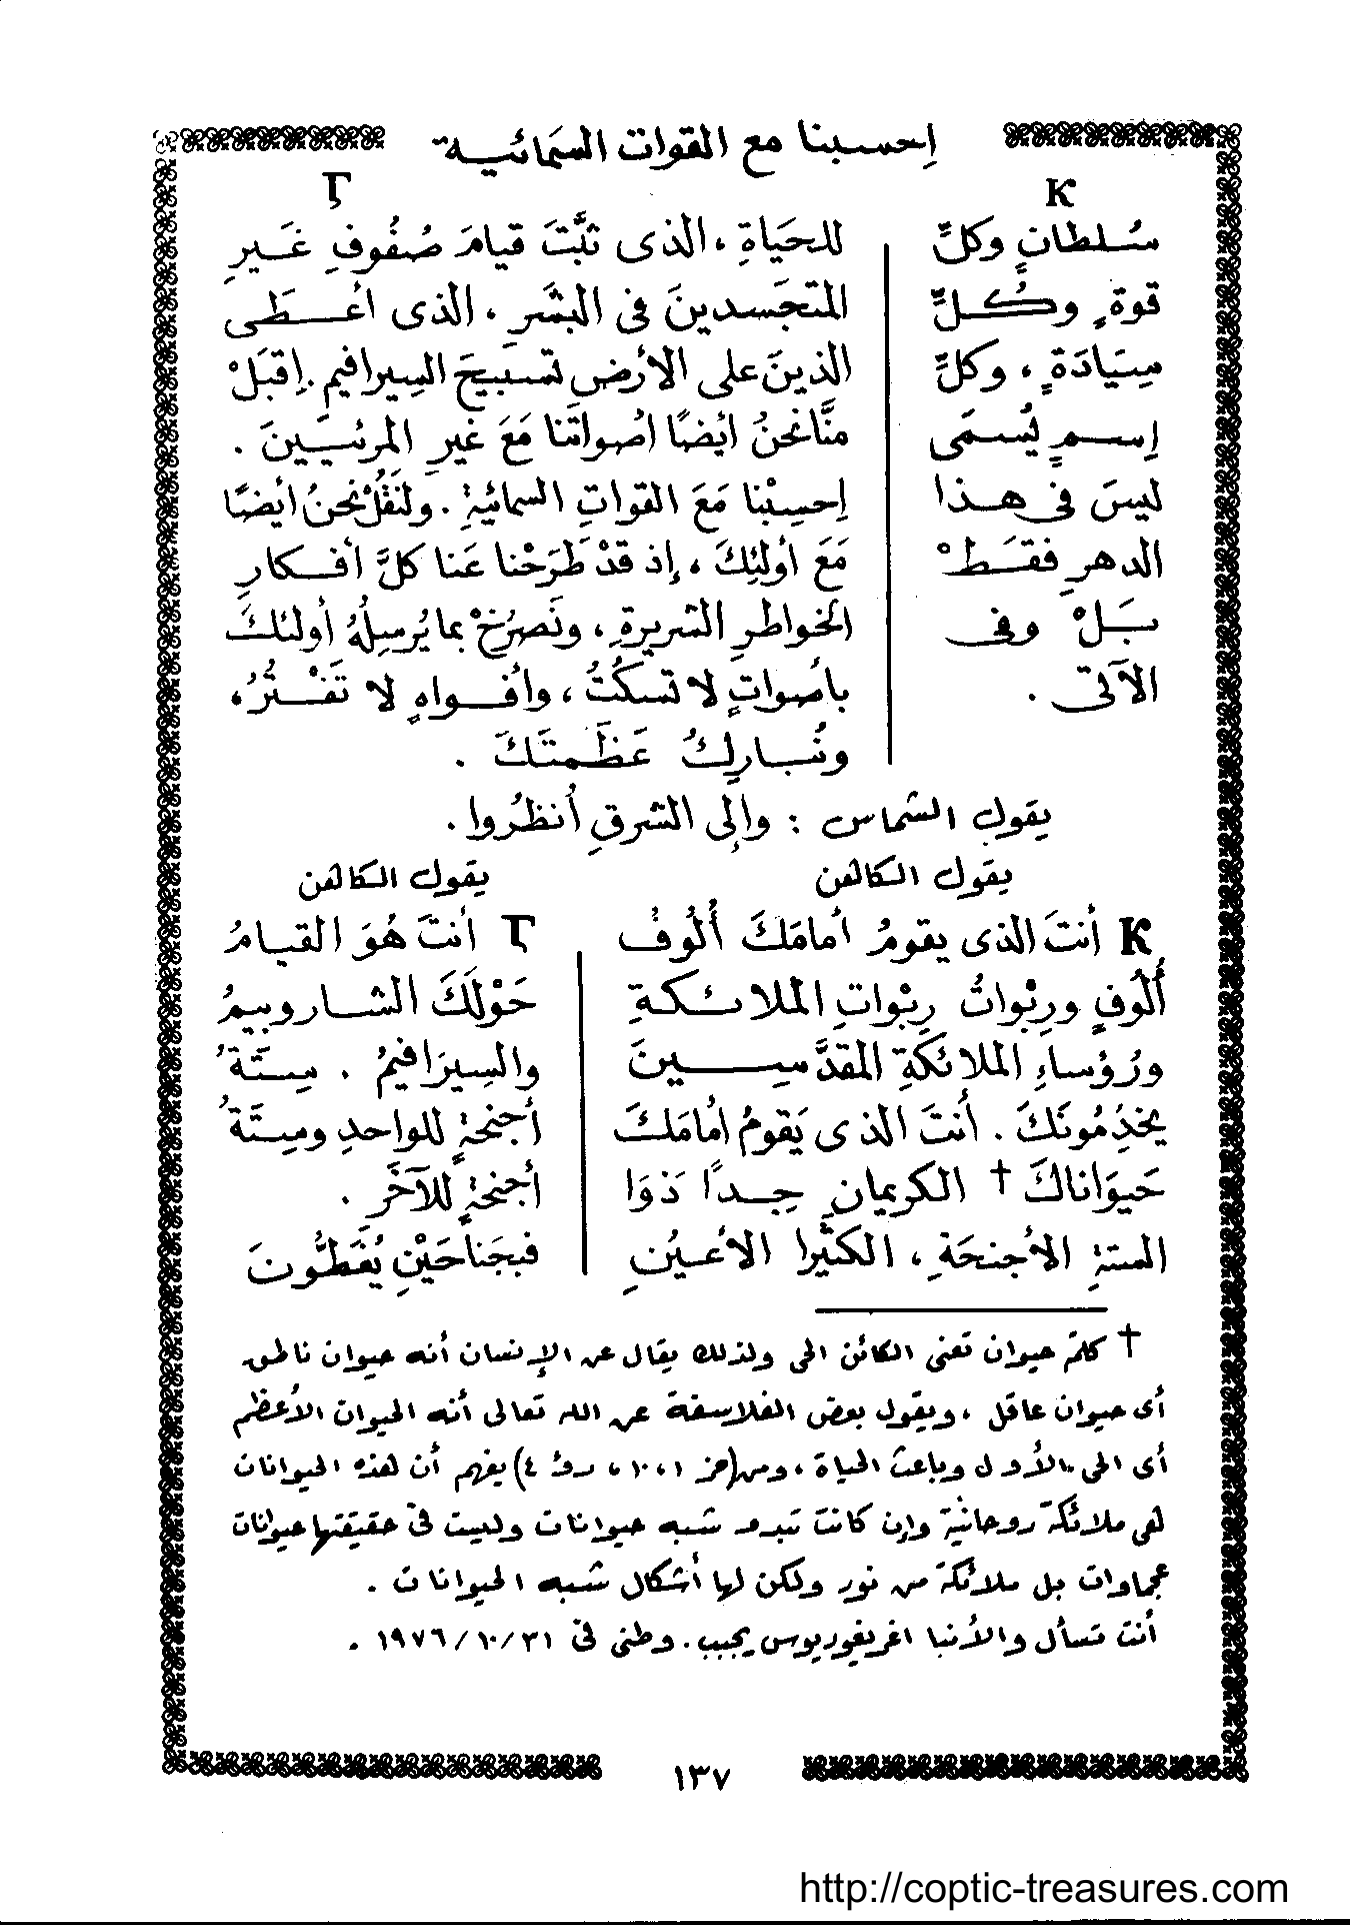 إحسبنا مع القوات السمائية
K
سُلطانٍ وكلِّ
قوةٍ وكُلِّ
سِيَادَةٍ ، وكلِّ
إسمٍ يُسمَى
ليسَ فى هذا
الدهرِ فقَطْ
بَلْ وفى
الآتى .
Ⲅ
للحَيَاةِ ، الذى ثبَّتَ قيامَ صُفُوفِ غَيرِ
المتجَسدينَ فى البشَرِ ، الذى أعطَى
الذينَ على الأرضِ تسبيحَ السِيرافيمِ . إقبَلْ
منَّا نحنُ أيضًا أصواتَنا مَعَ غيرِ المرئيينَ .
إحسِبْنا مَعَ القواتِ السمائيةِ . ولنَقُلْ نحنُ أيضًا
مَعَ أولئِكَ ، إذ قدْ طَرَحْنا عَنا كلَّ أفكارِ
الخواطرِ الشريرةِ ، ونَصرُخْ بما يُرسِلُهُ أولئكَ
بأصواتٍ لا تسكُتُ ، وأفواهٍ لا تَفْتُرُ ،
ونُبارِكُ عَظَمتَكَ .
يقول الشماس : وإلى الشرقِ أُنظُروا .
يقول الكاهن
K أنتَ الذى يقومُ أمامَكَ أُلُوفُ
أُلُوفٍ ورِبْواتُ رِبْواتِ الملائكةِ
ورُؤساءِ الملائكَةِ المقدَّسِينَ
يخدِمُونَكَ . أنتَ الذى يَقومُ أمَامَكَ
حَيوَاناكَ † الكريمانِ جِداً ذوَا
الستةِ الأجنحَةِ ، الكثيرا الأعيُنِ
يقول الكاهن
Ⲅ أنتَ هُوَ القيامُ
حَوْلَكَ الشاروبيمُ
والسِيرَافيمُ . سِتَّةُ
أجنحةٍ للواحدِ وسِتَّةُ
أجنحةٍ للآخَرِ .
فبجَناحَيْنِ يُغَطُّونَ
† كلمة حيوان تعنى الكائن الحى ولذلك يقال عن الإنسان أنه حيوان ناطق
أى حيوان عاقل ، ويقول بعض الفلاسفة عن الله تعالى أنه الحيوان الأعظم
أى الحى الأول وباعث الحياة ، ومن (حز ١ ، ١٠ ، رؤ ٤) يفهم أن هذه الحيوانات
هى ملائكة روحانية وإن كانت تبدو شبه حيوانات وليست فى حقيقتها حيوانات
عجماوات بل ملائكة من نور ولكن لها أشكال شبه الحيوانات .
أنت تسأل والأنبا اغريغوريوس يجيب . وطنى فى ٣١/ ١٠/ ١٩٧٦ .
١٣٧
http://coptic-treasures.com